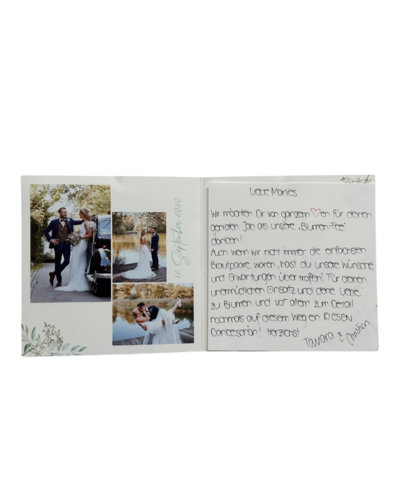 12. September 2020
Liebe Marlies
Wir möchten Dir von ganzem ♡en für deinen
genialen Job als unsere „Blumen-Fee"
danken!
Auch wenn wir nicht immer die einfachsten
Brautpaare waren, hast du unsere Wünsche
und Erwartungen übertroffen! Für deinen
unermüdlichen Einsatz und deine Liebe
zu Blumen und vor allem zum Detail
nochmals auf diesem Weg ein RIESEN
Dankeschön! Herzlichst
Tamara & Christian